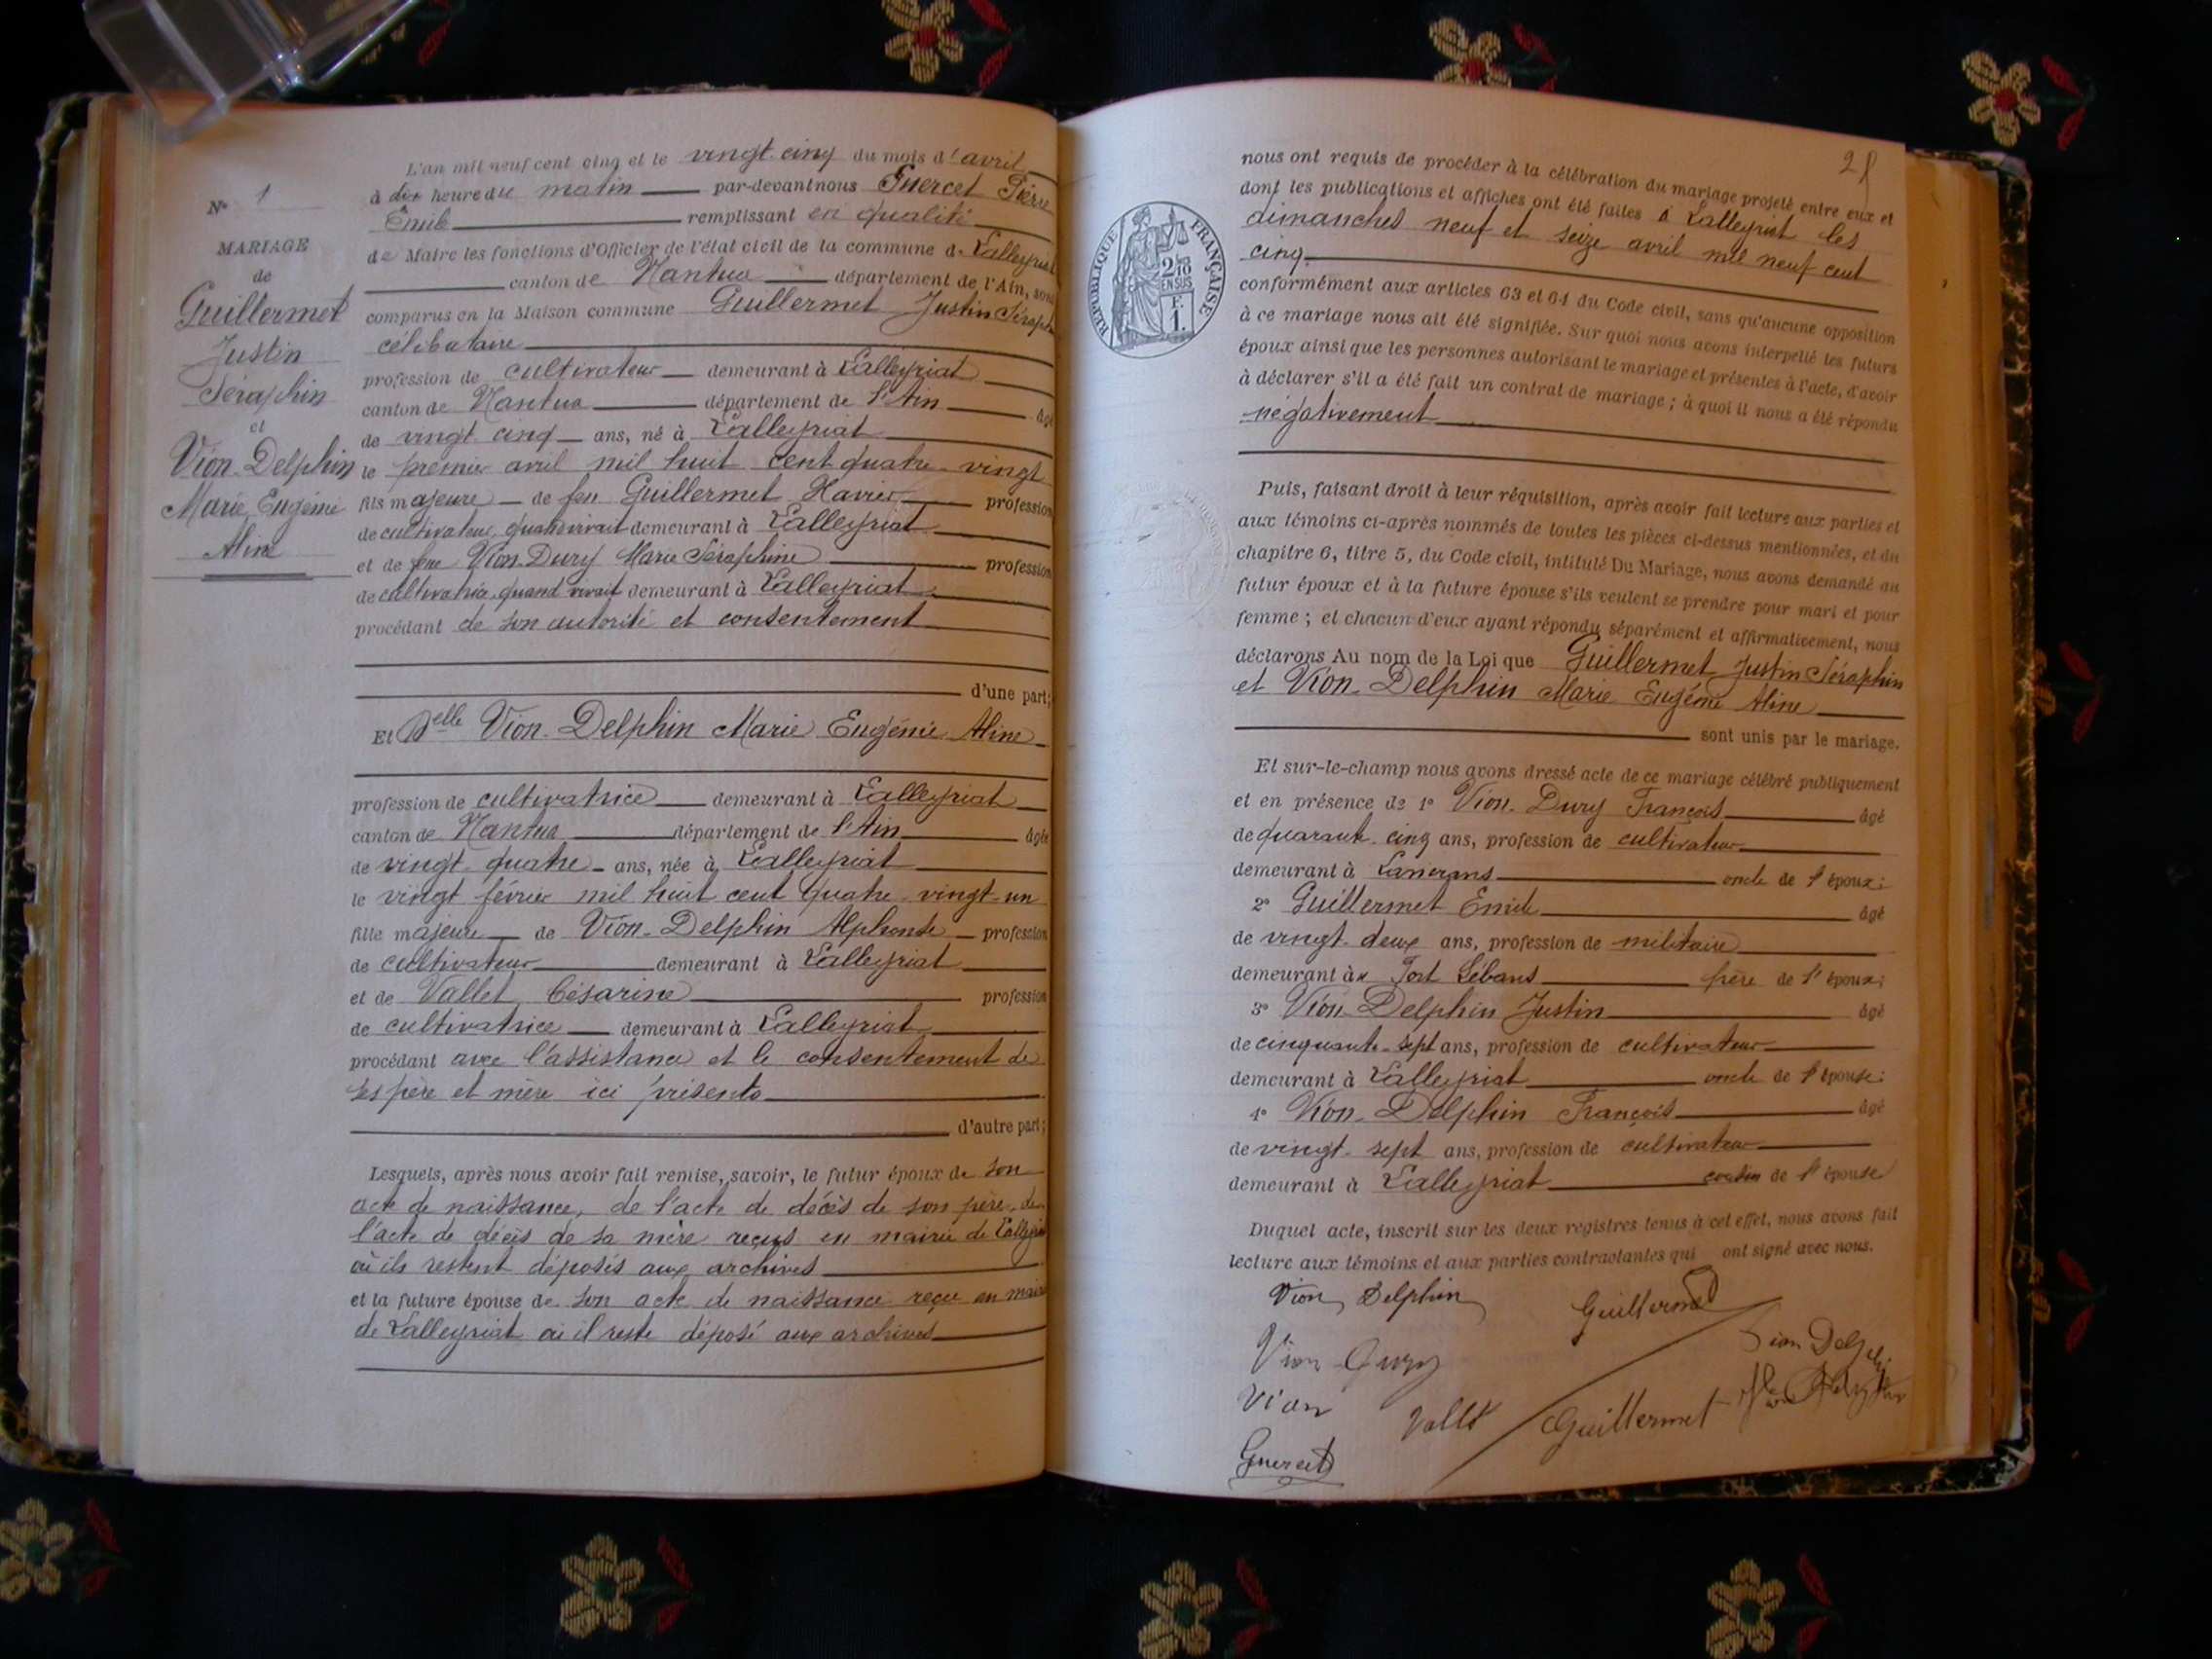 N° 1
MARIAGE
de
Guillermet
Justin
Séraphin
et
Vion-Delphin
Marie Eugénie
Aline
L'an mil neuf cent cinq et le vingt-cinq du mois d'avril
à dix heure du matin par-devant nous Guercet Pierre
Emile remplissant en qualité
de Maire les fonctions d'Officier de l'état civil de la commune de Lalleyriat
canton de Nantua département de l'Ain, sont
comparus en la Maison commune Guillermet Justin Séraphin
célibataire
profession de cultivateur demeurant à Lalleyriat
canton de Nantua département de l'Ain âgé
de vingt cinq ans, né à Lalleyriat
le premier avril mil huit cent quatre-vingt
fils majeure de feu Guillermet Xavier profession
de cultivateur, quand vivait demeurant à Lalleyriat
et de feue Vion-Dury Marie Séraphine profession
de cultivatrice quand vivait demeurant à Lalleyriat
procédant de son autorité et consentement
d'une part;
Et Delle Vion-Delphin Marie Eugénie Aline
profession de cultivatrice demeurant à Lalleyriat
canton de Nantua département de l'Ain âgée
de vingt-quatre ans, née à Lalleyriat
le vingt février mil huit cent quatre-vingt-un
fille majeure de Vion-Delphin Alphonse profession
de cultivateur demeurant à Lalleyriat
et de Vallet Césarine profession
de cultivatrice demeurant à Lalleyriat
procédant avec l'assistance et le consentement de
ses père et mère ici présents
d'autre part;
Lesquels, après nous avoir fait remise, savoir, le futur époux de son
acte de naissance, de l'acte de décès de son père, de
l'acte de décès de sa mère reçus en mairie de Lalleyriat
où ils restent déposés aux archives
et la future épouse de son acte de naissance reçu en mairie
de Lalleyriat où il reste déposé aux archives
28
nous ont requis de procéder à la célébration du mariage projeté entre eux et
dont les publications et affiches ont été faites à Lalleyriat les
dimanches neuf et seize avril mil neuf cent
cinq
conformément aux articles 63 et 64 du Code civil, sans qu'aucune opposition
à ce mariage nous ait été signifiée. Sur quoi nous avons interpellé les futurs
époux ainsi que les personnes autorisant le mariage et présentes à l'acte, d'avoir
à déclarer s'il a été fait un contrat de mariage; à quoi il nous a été répondu
négativement
RÉPUBLIQUE FRANÇAISE
2/10
EN SUS
F.
1.
Puis, faisant droit à leur réquisition, après avoir fait lecture aux parties et
aux témoins ci-après nommés de toutes les pièces ci-dessus mentionnées, et du
chapitre 6, titre 5, du Code civil, intitulé Du Mariage, nous avons demandé au
futur époux et à la future épouse s'ils veulent se prendre pour mari et pour
femme; et chacun d'eux ayant répondu séparément et affirmativement, nous
déclarons Au nom de la Loi que Guillermet Justin Séraphin
et Vion-Delphin Marie Eugénie Aline
sont unis par le mariage.
Et sur-le-champ nous avons dressé acte de ce mariage célébré publiquement
et en présence de 1° Vion-Dury François âgé
de quarante-cinq ans, profession de cultivateur
demeurant à oncle de l'époux;
2° Guillermet Emile âgé
de vingt-deux ans, profession de militaire
demeurant au Fort frère de l'époux;
3° Vion-Delphin Justin âgé
de cinquante-sept ans, profession de cultivateur
demeurant à Lalleyriat oncle de l'épouse;
4° Vion-Delphin François âgé
de vingt-sept ans, profession de cultivateur
demeurant à Lalleyriat cousin de l'épouse
Duquel acte, inscrit sur les deux registres tenus à cet effet, nous avons fait
lecture aux témoins et aux parties contractantes qui ont signé avec nous.
Vion Delphin Guillermet
Vion-Dury Vion Delphin
Vion Vallet Guillermet
Guercet